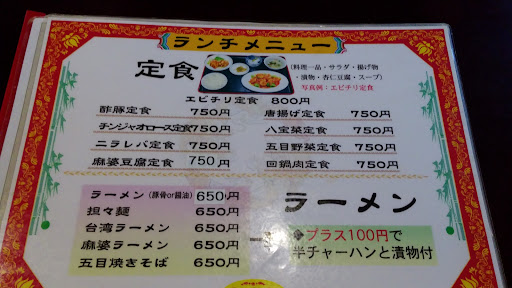 ランチメニュー
定食
(料理一品・サラダ・揚げ物
・漬物・杏仁豆腐・スープ)
写真例:エビチリ定食
エビチリ定食 800円
酢豚定食 750円
チンジャオロース定食 750円
ニラレバ定食 750円
麻婆豆腐定食 750円
唐揚げ定食 750円
八宝菜定食 750円
五目野菜定食 750円
回鍋肉定食 750円
ラーメン(豚骨or醤油) 650円
担々麺 650円
台湾ラーメン 650円
麻婆ラーメン 650円
五目焼きそば 650円
ラーメン
◆プラス100円で
半チャーハンと漬物付